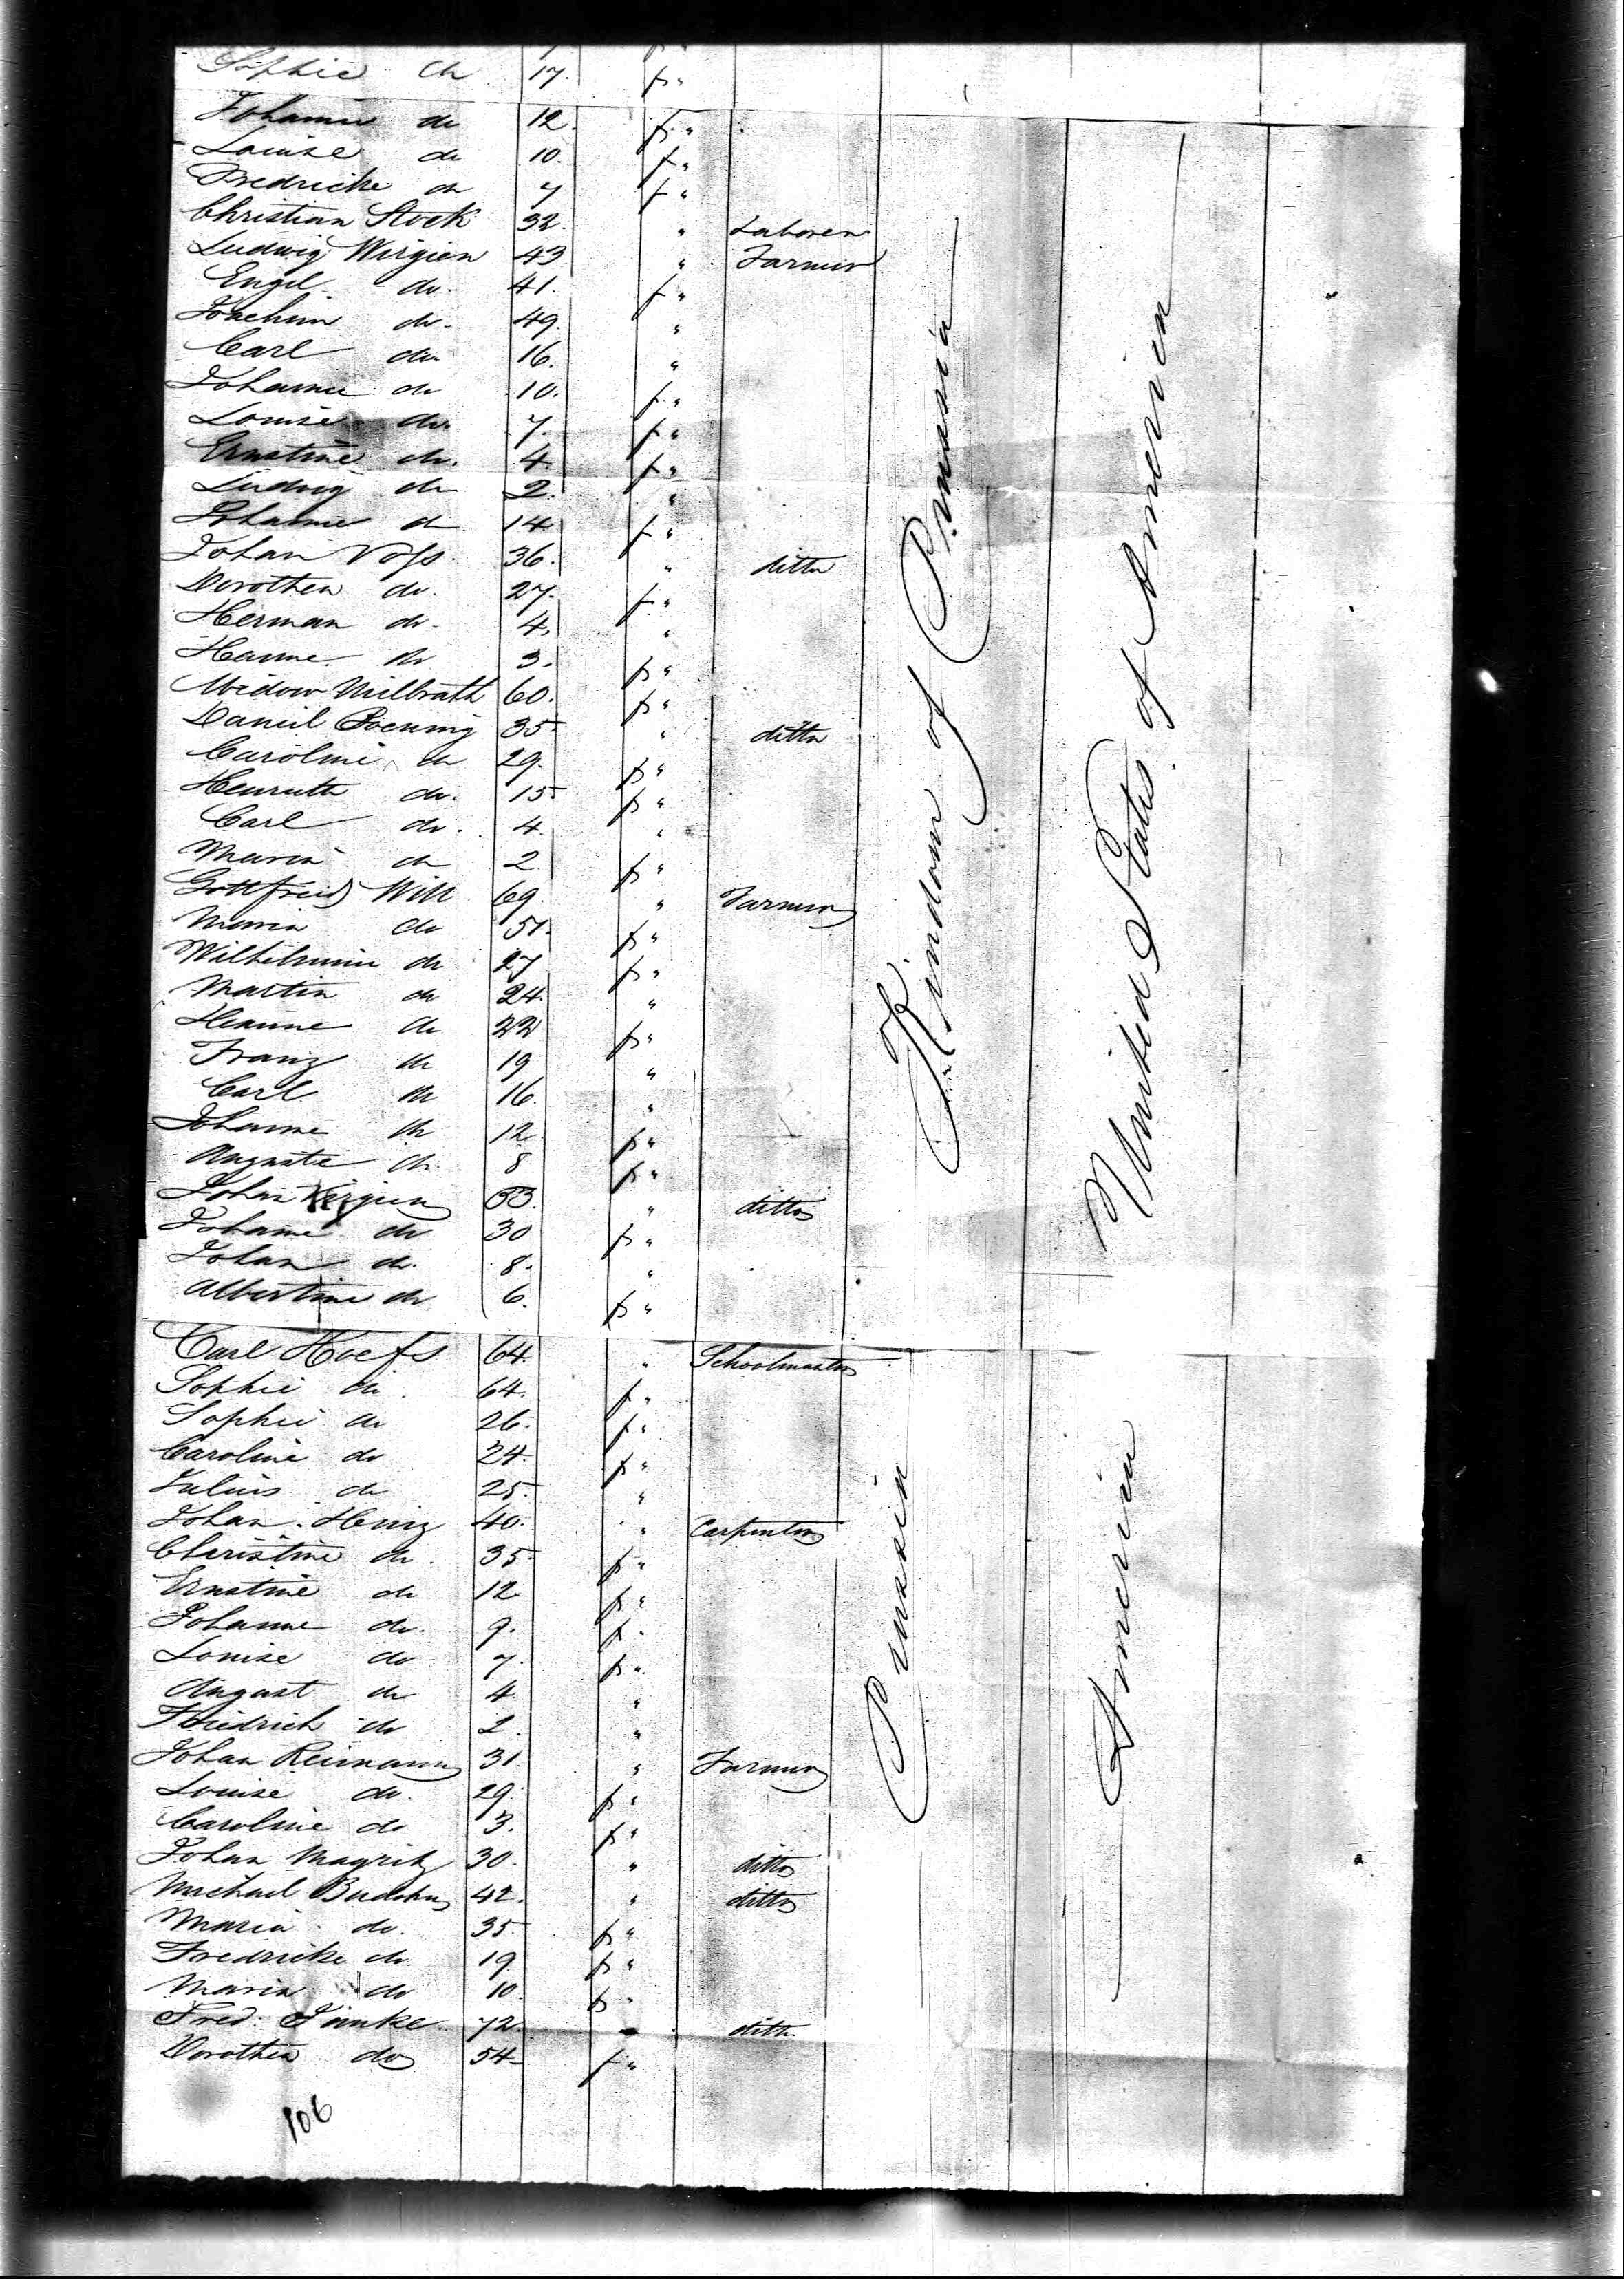 Sophie do 17. f "
Johanne do 12. f "
Louise do 10. f "
Fredricke do 7 f "
Christian Stock 32. " Laborer
Ludwig Wirgien 43 " Farmer
Engel do. 41. f "
Joachim do. 49. "
Carl do 16. "
Johanne do 10. f "
Louise do. 7. f "
Ernstine do. 4. f "
Ludwig do 2. "
Johanne do 14. f "
Johan Voss. 36. " ditto
Dorothea do. 27. f "
Herman do. 4. "
Hanne do 3. f "
Widow Milbrath 60. f "
Daniel Boening 35. " ditto
Caroline do 29. f "
Henriette do. 15. f "
Carl do. 4. "
Maria do 2. f "
Gottfried Will 69. " Farmer
Maria do 51. f "
Wilhelmine do 27 f "
Martin do 24. "
Hanne do 22 f "
Franz do 19 "
Carl do 16. "
Johanne do 12. f "
Auguste do 8 f "
Johan 33. " ditto
Johanne do 30 f "
Johan do. 8. "
Albertine do 6. f "
Carl Hoefs 64. " Schoolmaster
Sophie do. 64. f "
Sophie do 26. f "
Caroline do 24. f "
Julius do 25. "
Johan. Heinz 40. " Carpenter
Christine do. 35. f "
Ernstine do 12. f "
Johanne do. 9. f "
Louise do 7. f "
August do 4 "
Friedrich do 2. "
Johan Reimann 31. " Farmer
Louise do. 29. f "
Caroline do 3. f "
Johan Magritz 30. " ditto
Michael 42. " ditto
Maria do. 35 f "
Fredricke do 19. f "
Maria do 10. f "
Fred. 72. " ditto
Dorothea do 54 f "
Kindom of Prussia
United States of America
Prussia
America
106